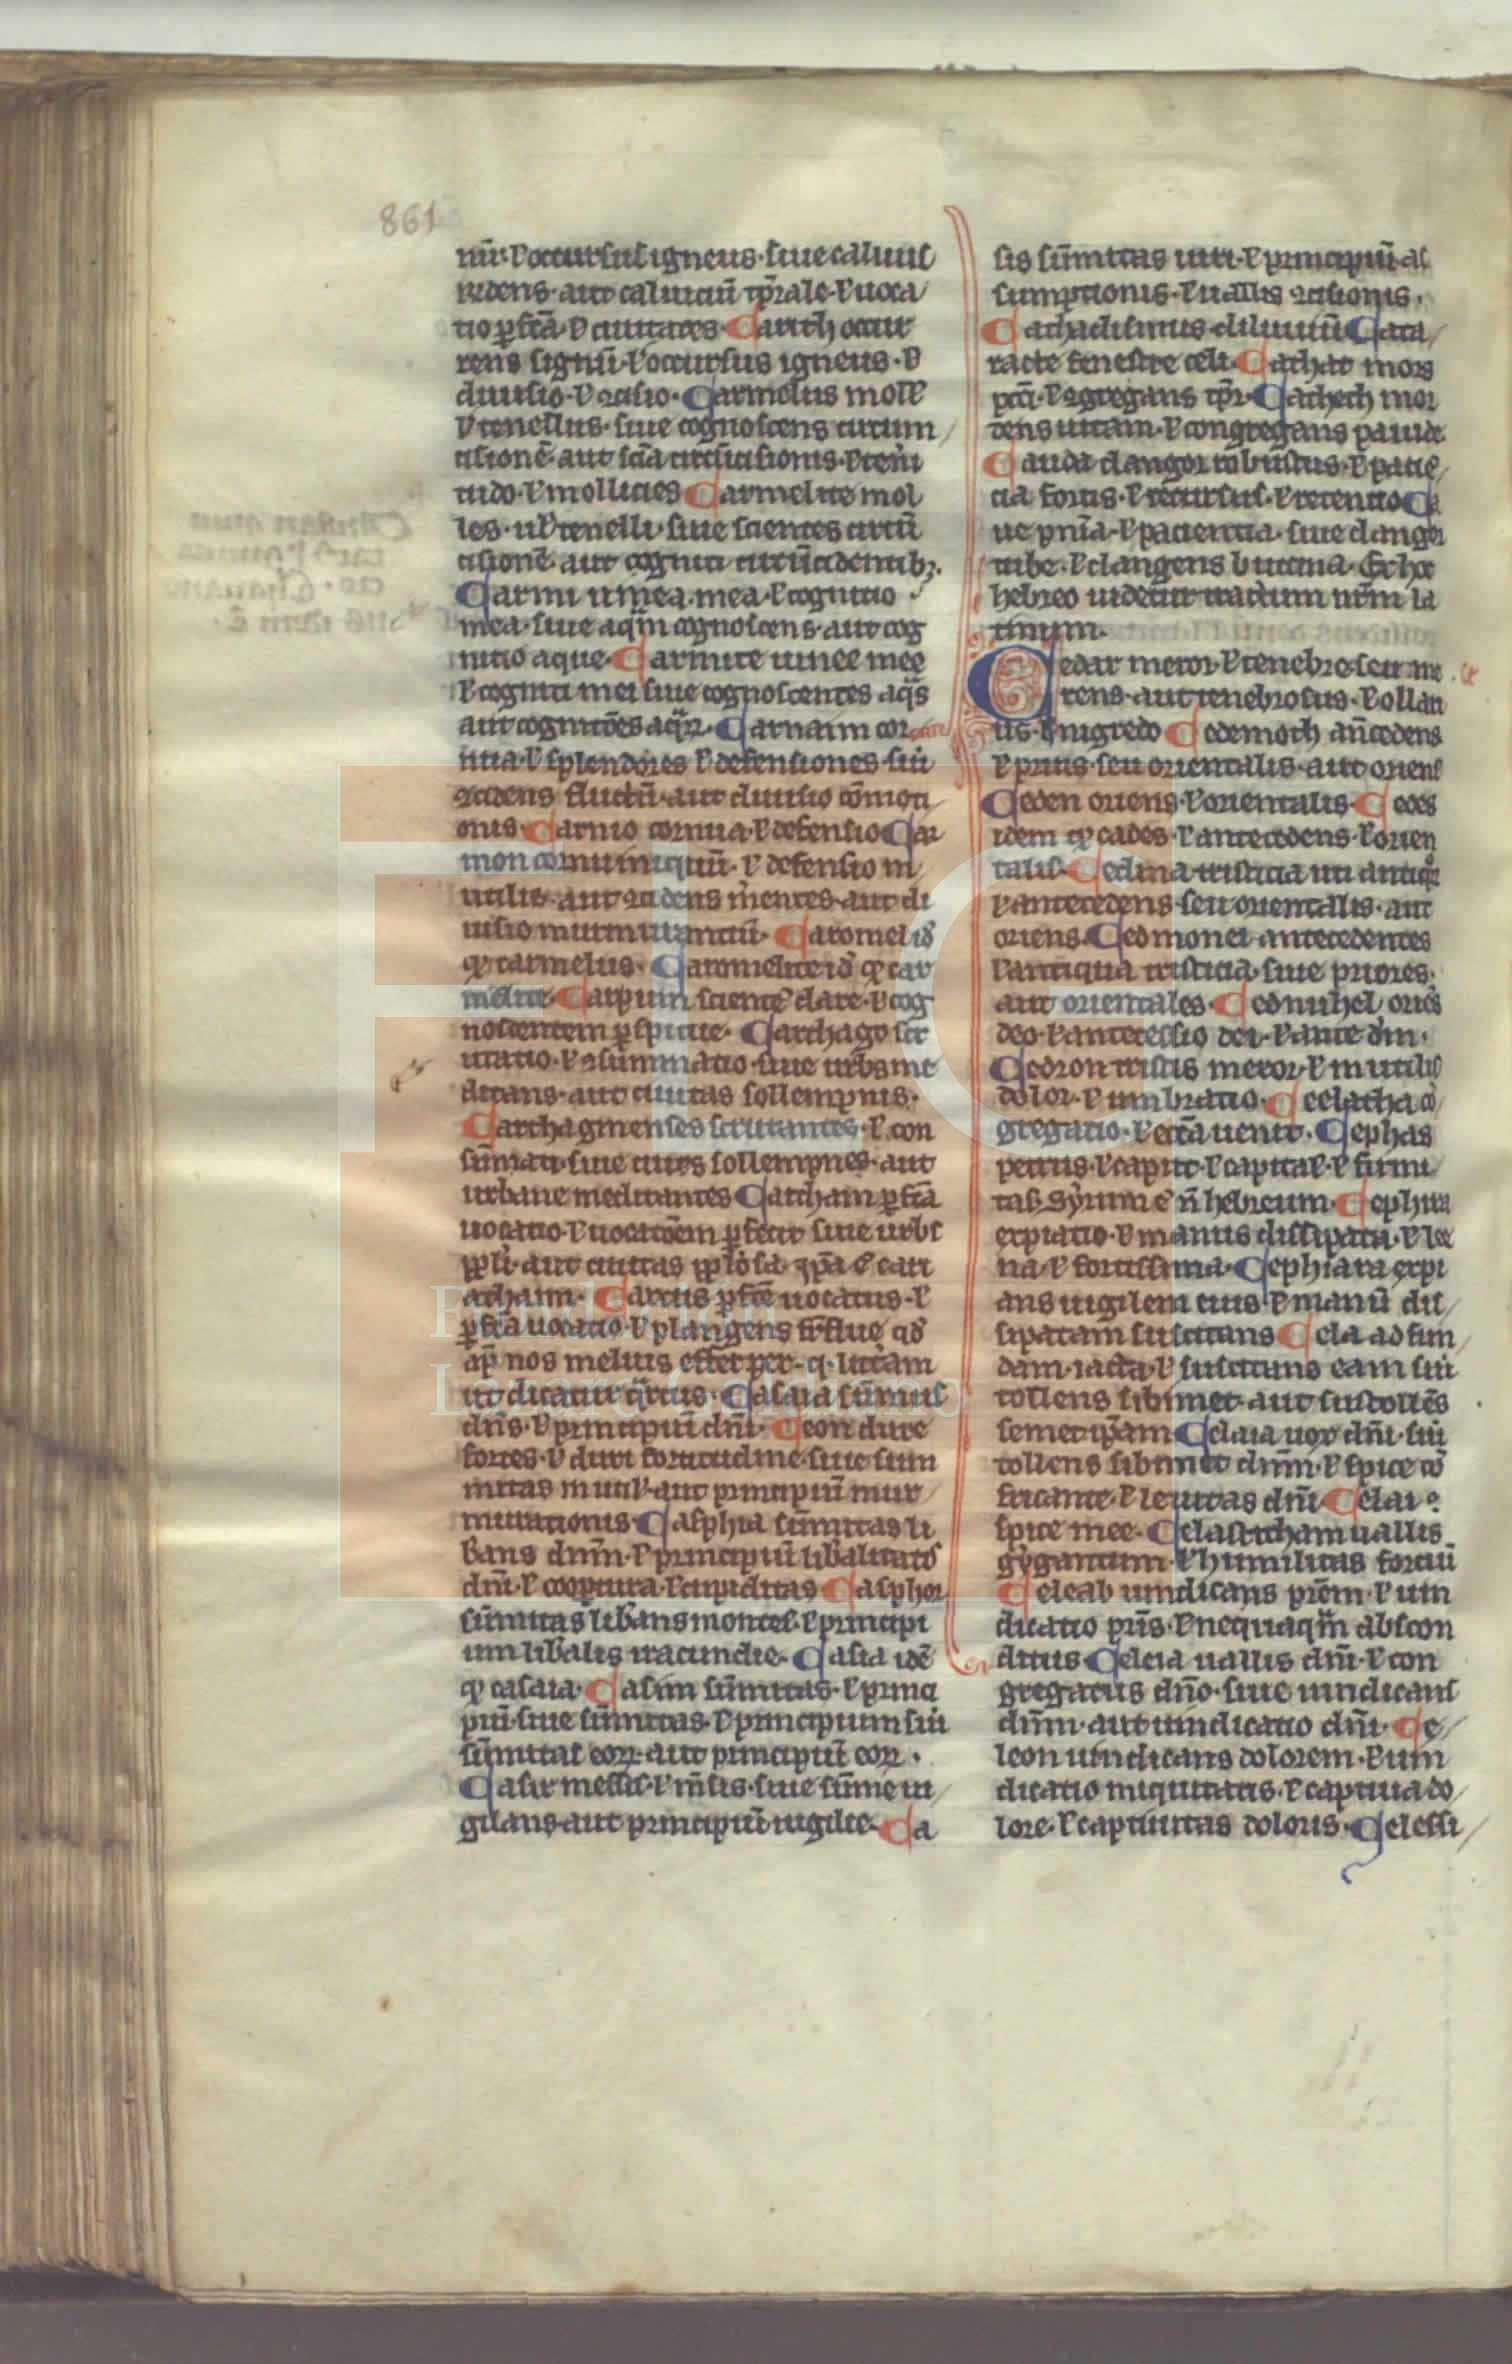 861
nu᷑. ł occursus igneus. siue caluus
ridens. aut caluiciū tp̄rale. ł uoca/
tio ꝑfc̄a. ł ciuitates Carith occur
rens signū. ł occursus igneus. ł
diuisio. ł ꝯcisio. Carmelus mollˀ
ł tenellus. siue cognoscens circum/
cisionē. aut sc̄ia circūcisionis. ł teneri
tudo. ł mollicies Carmelite mol
les. uł tenelli. siue scientes circū
cisionē. aut cogniti circūcidentibꝫ.
Carmi uinea mea. ł cognitio
mea. siue aqm̄ cognoscens. aut cog
nitio aque. Carmite uinee mee
ł cogniti mei siue cognoscentes aqͣs
aut cognitōes aqͣꝝ. Carnaim cor
nua. ł splendores ł defensiones siū
ꝯcidens fluctū. aut diuisio cōmoti
onis. Carnio cornua. ł defensio Car
mon cornu iniquū. ł defensio in
utilis. aut ꝯcidens merentes. aut di
uisio murmurantiū. Caromel id
qd carmelus. Caromelite id qd car
melite. Carpum scientē clare. ł cog
noscentem ꝑspicue. Carthago scr
utatio. ł ꝯsūmatio siue urbs me
ditans. aut ciuitas sollempnis.
Carthaginenses scrutantes. ł con
sūmati. siue ciues sollempnes. aut
urbane meditantes Cartham ꝑfc̄a
uocatio. ł uocatōem ꝑfecit siue urbs
aut ciuitas
atham. Carcus ꝑfc̄e uocatus. ł
ꝑfc̄a uocatio. ł plangens qd
ap̄ nos melius esset per. q. litt̄am
ut dicatur qͥrcus. Casaia sūmus
dn̄s. ł principiū dn̄i. Ceon dure
fortes. ł duri fortitudine. siue sum
mitas inutilˀ. aut principiū mur/
murationis. Casphia sūmitas li
bans dnm̄. ł principiū libalitatis
dn̄i. ł cooptura. ł cupiditas Casphor
sūmitas libans montes. ł principi
um libalis iracundie. Casia idē
qd casaia. Casim sūmitas. ł princi
piū. siue sūmitas. ł principium siū
sūmitas eoꝝ. aut principiū eoꝝ.
Casir messis. ł mēsis. siue sūme ui/
gilans. aut principiū uigilie. Ca
sis sūmitas uiri. ł principiū as
sumptionis. ł uallis ꝯcisionis.
Cathaclismus diluuiū Cata/
racte fenestre celi. Cathat mors
pctī. ł ꝯgregans tp̄r. Cathech mor
dens uitam. ł congregans pauide
Cauda clangor robustus. ł pacie/
cia fortis. ł recursus. ł retentio Ca
ue pn̄ia. ł paciencia. siue clangor
tube. ł clangens buccina. Ex hoc
hebreo uidetur tractum nom̄ la
tinum.
Cedar meror. ł tenebre. seu me
rens. aut tenebrosus. ł ollari
us. ł nigredo Cedemoth an̄cedens
ł prius. seu orientalis. aut oriens
Ceden oriens. ł orientalis. Cedes
idem qd cades. ł antecedens. ł orien
talis. Cedma tristicia
ł antecedens. seu orientalis. aut
oriens. Cedmonei antecedentes
ł antiqua tristicia. siue priores.
aut orientales. Cedmihel oriēs
deo. ł antecessio dei. ł ante dm̄.
Cedron tristis meror. ł inutilis
dolor. ł umbratio. Ceelatha co/
gregatio. ł ecc̄a uenit. Cephas
petrus. ł caput. ł capitalˀ. ł firmi/
tas. Syrum ē n̄ hebreum. Cephira
expiatio. ł manus dissipata. ł lee
na. ł fortissima. Cephiara expi
ans uigilem eius. ł manū dis/
sipatam suscitans Cela ad fun/
dam iacta. ł suscitans eam siū
tollens sibimet. aut sustollēs
semet ipsam. Celaia uox dn̄i. siū
tollens sibimet dnm̄. ł spice cō
fricante. ł leuitas dn̄i. Celai
spice mee. Celasticham uallis
gygantum. ł humilitas fortiū
Celeab uindicans prēm. ł uin
dicatio pris̄. ł nequaqͣm abscon
ditus Celcia uallis dn̄i. ł con
gregatus dn̄o. siue uindicans
dnm̄. aut uindicatio dn̄i. Ce/
leon uindicans dolorem. ł uin
dicatio iniquitatis. ł captiua do/
lore. ł captiuitas doloris. Celessi/